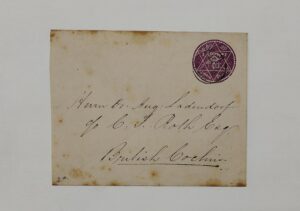 Herrn Dr. Aug. Ladendorf
c/o C. F. Roth Esq
British Cochin